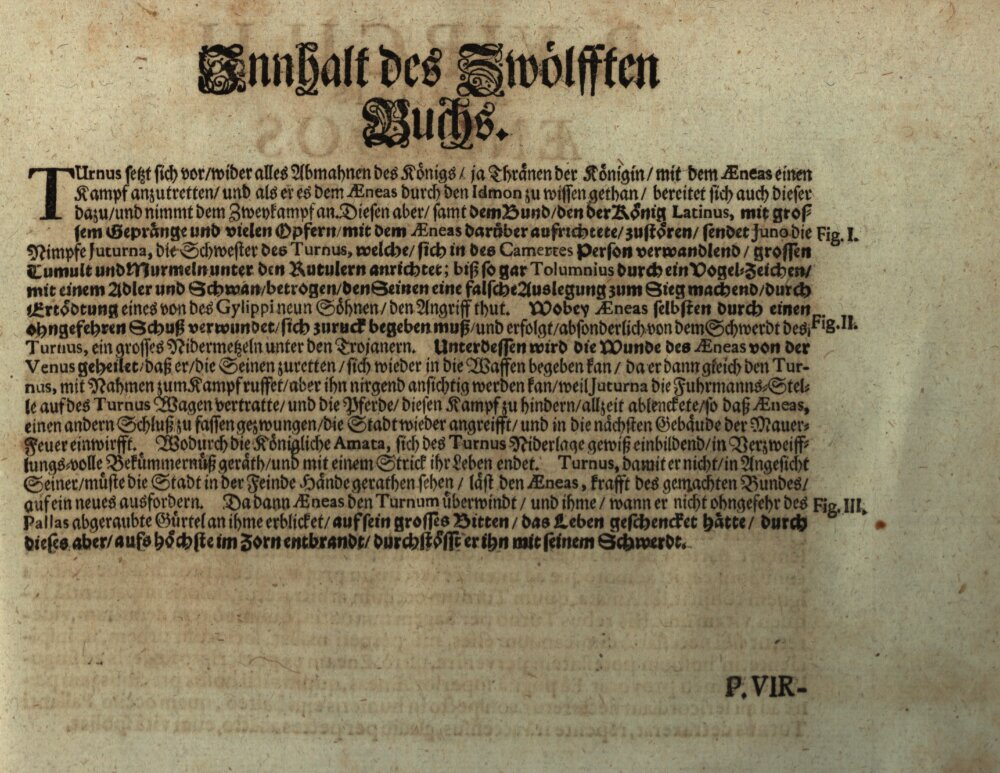 Innhalt des Zwölfften
Buchs.
TUrnus setzt sich vor/wider alles Abmahnen des Königs/ ja Thränen der Königin/ mit dem Æneas einen
Kampf anzutretten/ und als er es dem Æneas durch den Idmon zu wissen gethan/ bereitet sich auch dieser
dazu/und nimmt dem Zweykampf an. Diesen aber/ samt dem Bund/ den der König Latinus, mit gros-
sem Gepränge und vielen Opfern/ mit dem Æneas darüber aufrichtete/ zustören/ sendet Juno die Fig. I.
Nimpfe Juturna, die Schwester des Turnus, welche/ sich in des Camertes Person verwandlend/ grossen
Tumult und Murmeln unter den Rutulern anrichtet; biß so gar Tolumnius durch ein Vogel-Zeichen/
mit einem Adler und Schwan/ betrogen/ den Seinen eine falsche Auslegung zum Sieg machend/ durch
Ertödtung eines von des Gylippi neun Söhnen/ den Angriff thut. Wobey Æneas selbsten durch einen
ohngefehren Schuß verwundet/ sich zuruck begeben muß/ und erfolgt/ absonderlich von dem Schwerdt des Fig. II.
Turnus, ein grosses Nidermetzeln unter den Trojanern. Unterdessen wird die Wunde des Æneas von der
Venus geheilet/ daß er/ die Seinen zuretten/ sich wieder in die Waffen begeben kan/ da er dann gleich den Tur-
nus, mit Nahmen zum Kampf ruffet/ aber ihn nirgend ansichtig werden kan/ weil Juturna die Fuhrmanns-Stel-
le auf des Turnus Wagen vertratte/ und die Pferde/ diesen Kampf zu hindern/ allzeit ablenckete/ so daß Æneas,
einen andern Schluß zu fassen gezwungen/ die Stadt wieder angreifft/ und in die nächsten Gebäude der Mauer-
Feuer einwirfft. Wodurch die Königliche Amata, sich des Turnus Niderlage gewiß einbildend/ in Verzweiff-
lungs-volle Bekümmernüß geräth/ und mit einem Strick ihr Leben endet. Turnus, damit er nicht/ in Angesicht
Seiner/ müste die Stadt in der Feinde Hände gerathen sehen/ läst den Æneas, krafft des gemachten Bundes/
auf ein neues ausfordern. Da dann Æneas den Turnum überwindt/ und ihme/ wann er nicht ohngefehr des Fig. III.
Pallas abgeraubte Gürtel an ihme erblicket/ auf sein grosses Bitten/ das Leben geschencket hätte/ durch
dieses aber/ aufs höchste im Zorn entbrandt/ durchstösst er ihn mit seinem Schwerdt.
P. VIR-